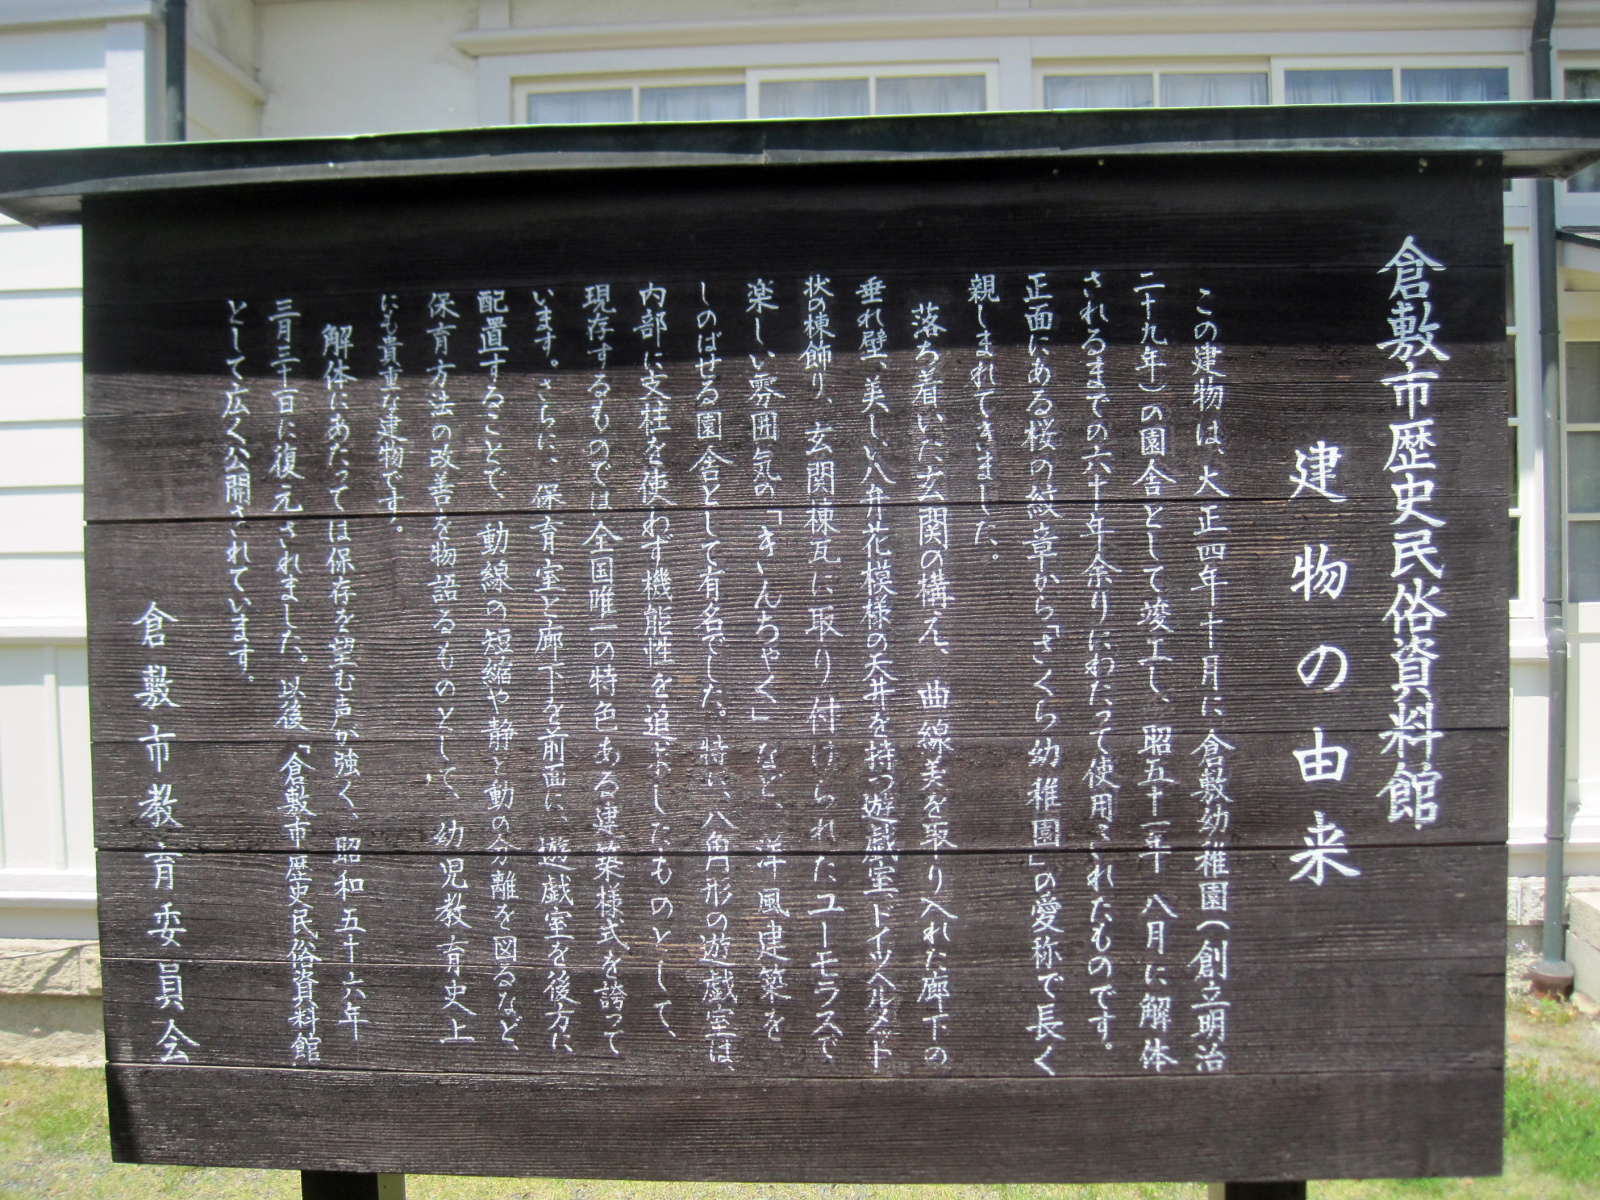 倉敷市歴史民俗資料館
建物の由来
この建物は、大正四年十月に倉敷幼稚園(創立明治
二十九年)の園舎として竣工し、昭五十一年八月に解体
されるまでの六十年余りにわたって使用されたものです。
正面にある桜の紋章から「さくら幼稚園」の愛称で長く
親しまれてきいました。
落ち着いた玄関の構え、曲線美を取り入れた廊下の
垂れ壁、美しい八弁花模様の天井を持つ遊戯室、ドイツヘルメット
状の棟飾り、玄関棟瓦に取り付けられたユーモラスで
楽しい雰囲気の「きんちゃく」など、洋風建築を
しのばせる園舎として有名でした。特に、八角形の遊戯室は、
内部に支柱を使わず機能性を追求したものとして、
現存するものでは全国唯一の特色ある建築様式を誇って
います。さらに、保育室と廊下を前面に、遊戯室を後方に
配置することで、動線の短縮や静と動の分離を図るなど、
保育方法の改善を物語るものとして、幼児教育史上
にも貴重な建物です。
解体にあたっては保存を望む声が強く、昭和五十六年
三月三十日に復元されました。以後「倉敷市歴史民俗資料館
として広く公開されています。
倉敷市教育委員会